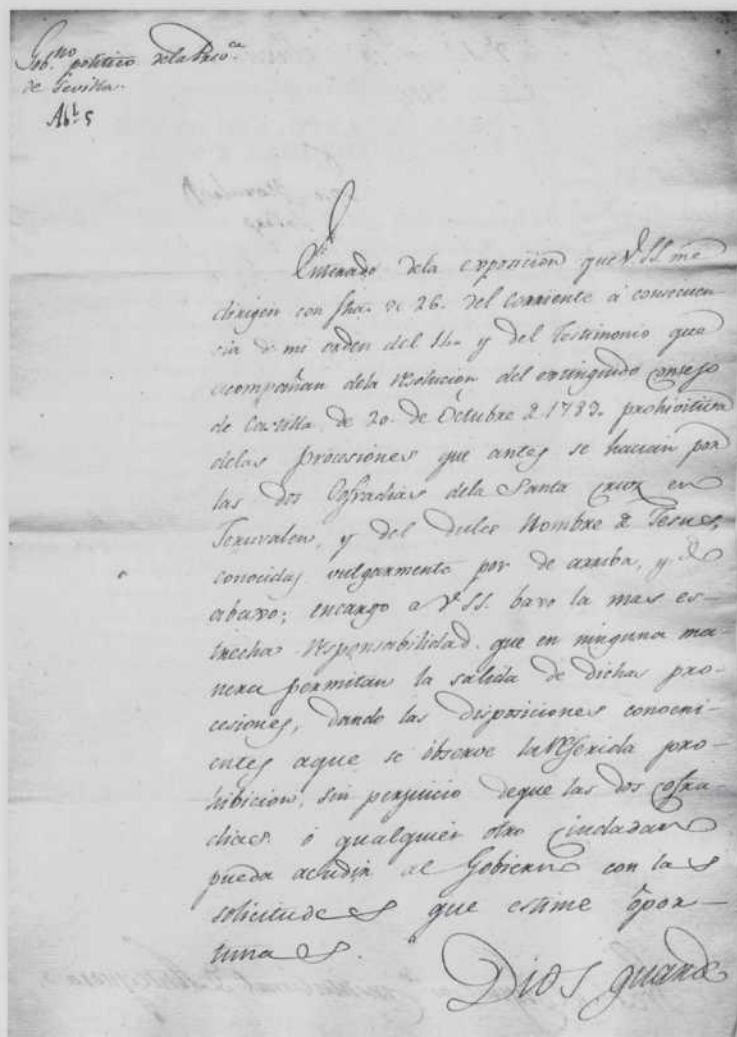 Gob.no politico dela Prov.ca
de Sevilla.
Ab.l 5
Enterado dela exposicion que V.SS. me
dirigen con fha. de 26. del Corriente á consecuen
cia de mi orden del 14. y del Testimonio que
acompañan dela resolucion del extinguido Consejo
de Castilla, de 20. de Octubre de 1783. prohivitiva
delas Procesiones que antes se hacian por
las dos Cofradias dela Santa Cruz en
Jeruzalen, y del dulce Nombre de Jesus,
conocidas vulgarmente por de arriba, y de
abaxo; encargo a V.SS. baxo la mas es-
trecha responsabilidad. que en ninguna ma
nera permitan la salida de dichas pro-
cesiones, dando las disposiciones conveni-
entes aque se observe la referida pro-
hibicion, sin perjuicio deque las dos cofra
dias. ó qualquier otro Ciudadano
pueda acudir al Gobierno con las
solicitudes que estime ópor-
tunas.
Dios guarde